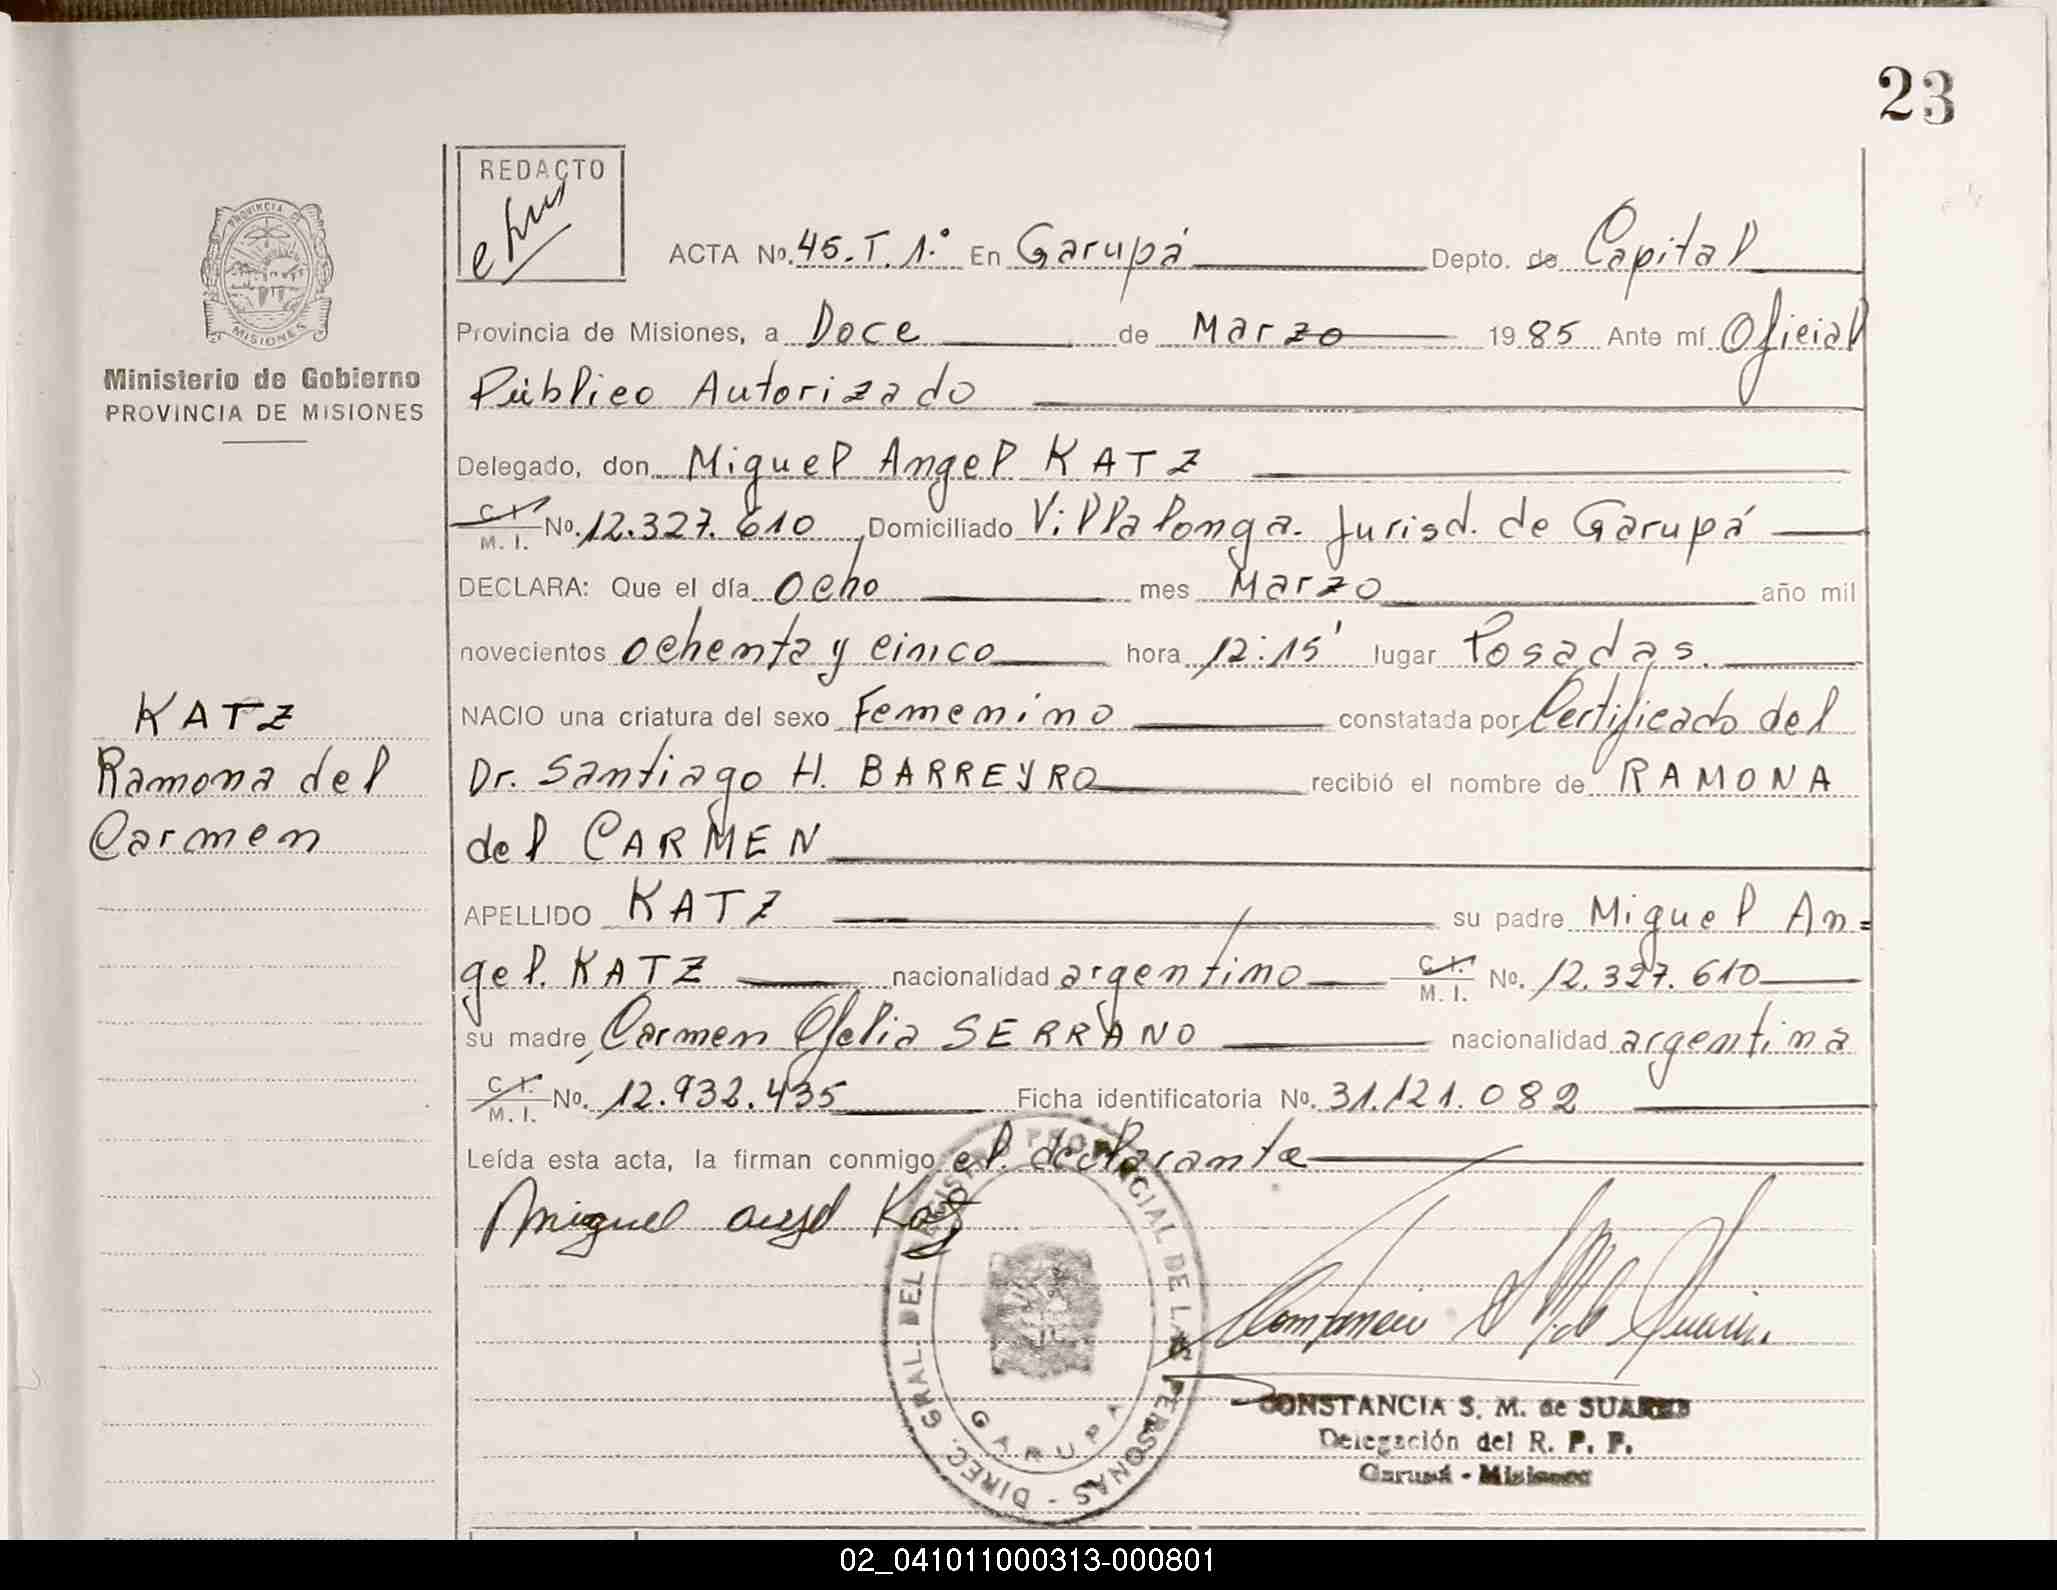 23
REDACTO
PROVINCIA DE
MISIONES
Ministerio de Gobierno
PROVINCIA DE MISIONES
ACTA No. 45. T. 1.° En Garupá Depto. de Capital
Provincia de Misiones, a Doce de Marzo 1985 Ante mí Oficial
Público Autorizado
Delegado, don Miguel Angel KATZ
C. I. / M. I. No. 12.327.610 Domiciliado Villalonga. Jurisd. de Garupá
DECLARA: Que el día Ocho mes Marzo año mil
novecientos ochenta y cinco hora 12:15' lugar Posadas.
KATZ
Ramona del
Carmen
NACIO una criatura del sexo Femenino constatada por Certificado del
Dr. Santiago H. BARREYRO recibió el nombre de RAMONA
del CARMEN
APELLIDO KATZ su padre Miguel An=
gel. KATZ nacionalidad argentino C. I. / M. I. No. 12.327.610
su madre Carmen Ofelia SERRANO nacionalidad argentina
C. I. / M. I. No. 12.932.435 Ficha identificatoria No. 31.121.082
Leída esta acta, la firman conmigo el. declarante
Miguel angel Katz
DIREC. GRAL. DEL REGISTRO PROVINCIAL DE LAS PERSONAS -
GARUPA
CONSTANCIA S. M. de SUAREZ
Delegación del R. P. P.
Garupá - Misiones
02_041011000313-000801